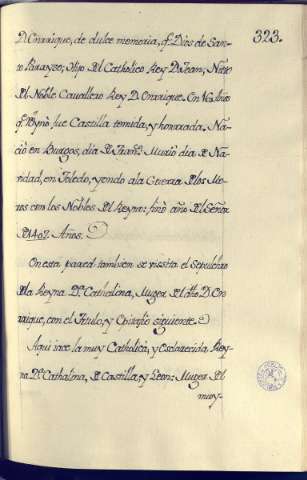 323.
D. Onrrique, de dulce memoria, q̃ Dios dè San-
to Parayso; Hijo del Catholico Rey D. Joan; Nieto
del Noble Cavallero Rey D. Onrrique. En 16. Años
q̃ Reynò fue Castilla temida, y honrrada. Na-
ciò en Burgos, dia de Muriò dia de Na-
vidad, en Toledo, yendo ala Guerra delos Mo-
ros con los Nobles del Reyno: finò año del Señor
de 1407 Años.
En esta pared tambien se vissita el Sepulchro
dela Reyna Dª. Cathalina, Muger del dho D. On-
rrique, con el Titulo, y Epitafio siguiente.
Aqui iace la muy Catholica, y Esclarecida Rey-
na Dª. Cathalina, de Castilla, y Leon: Muger del
muy-